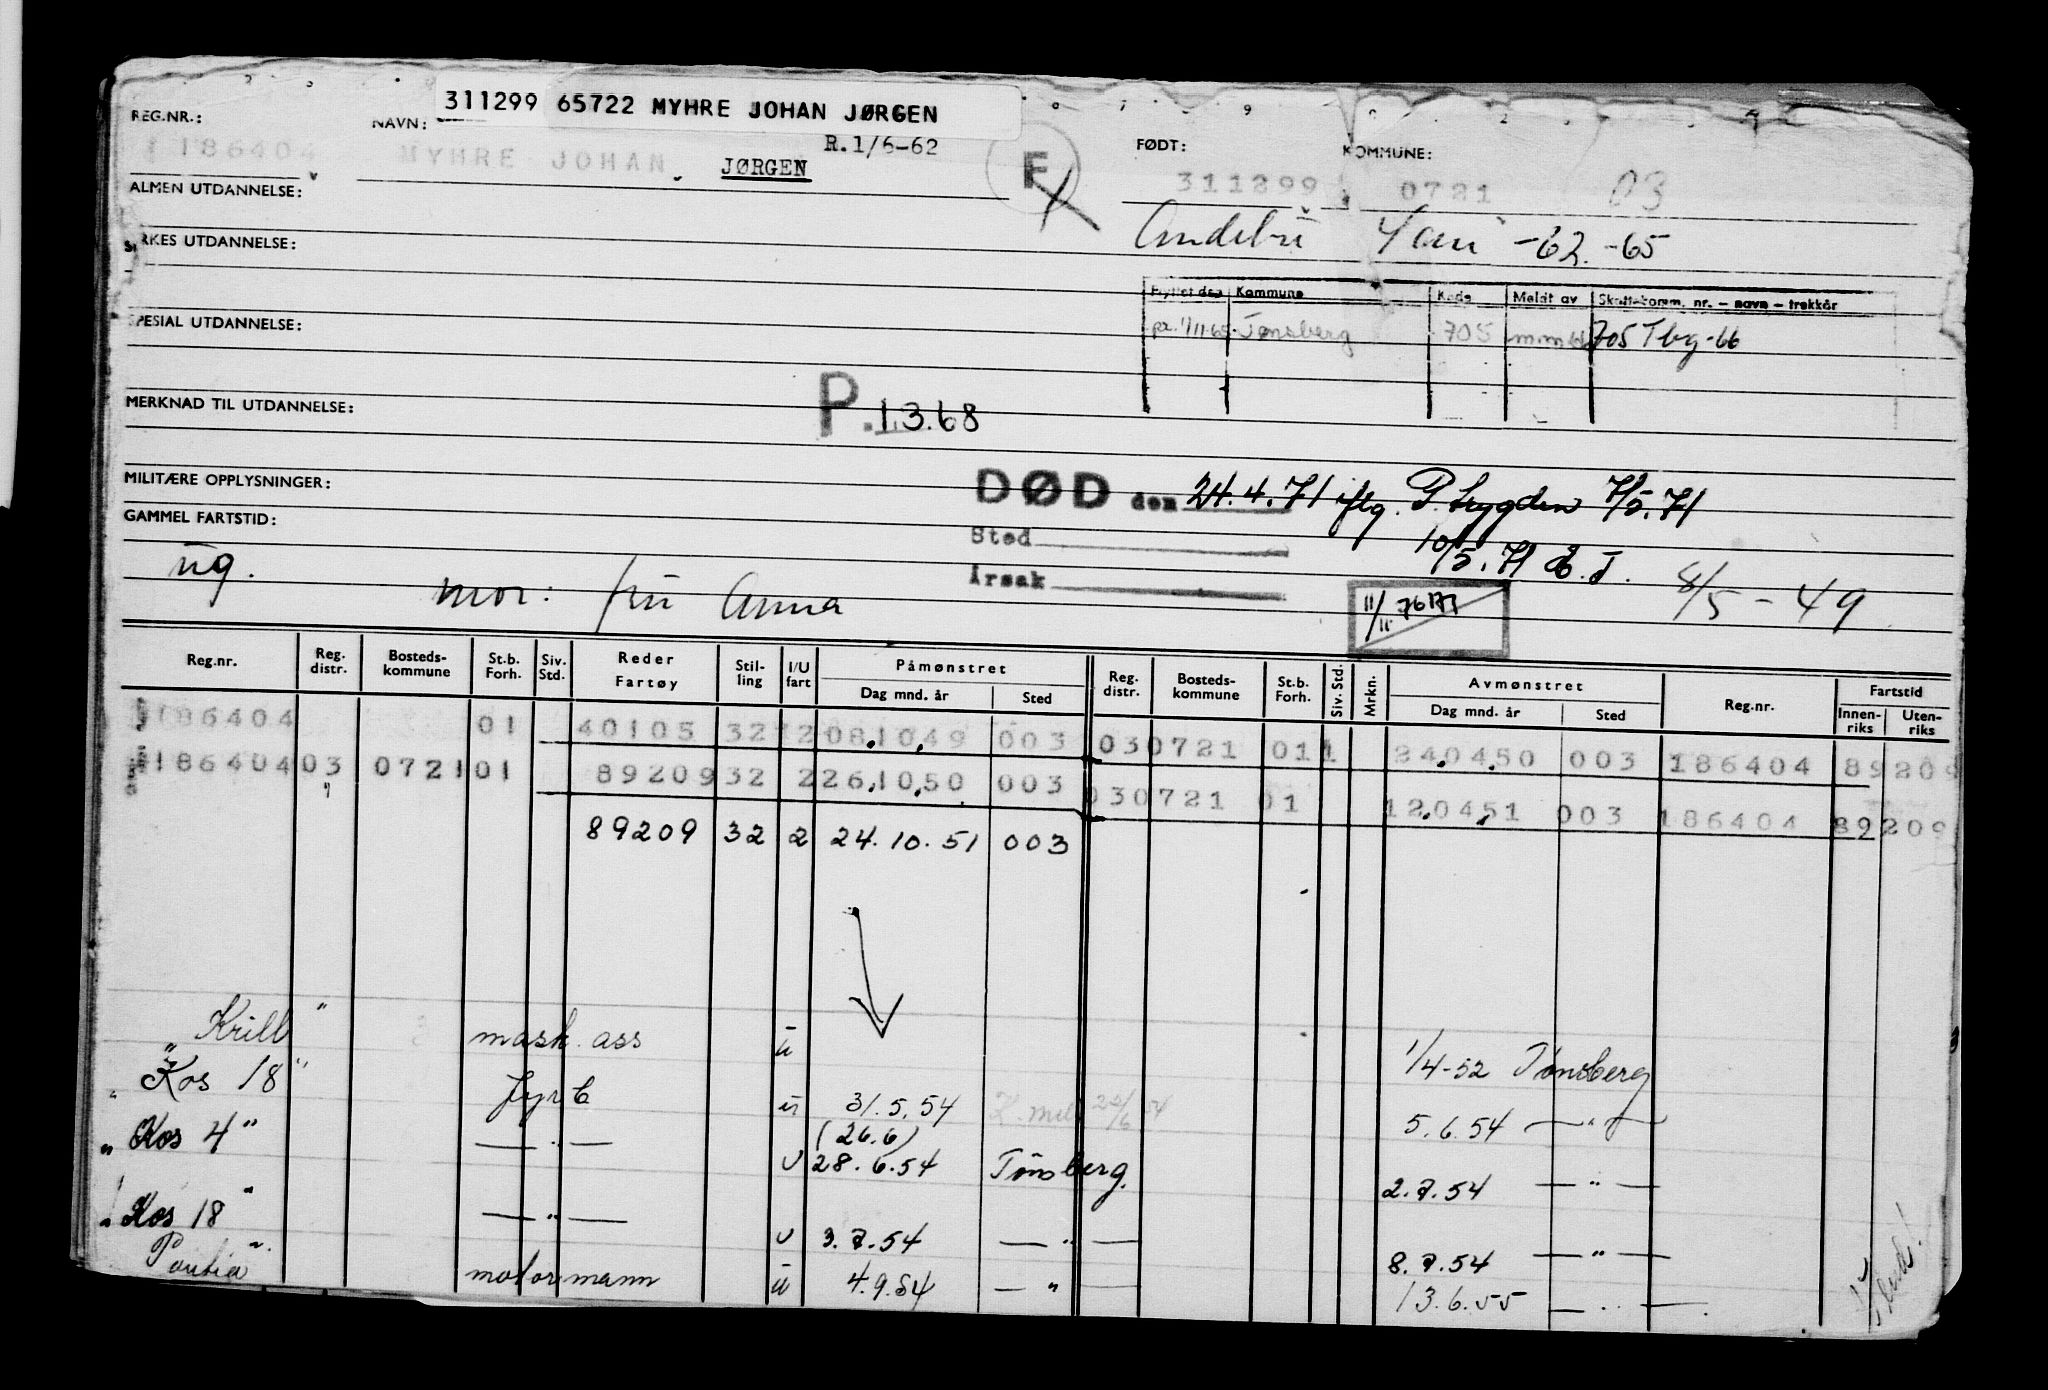 311299 65722 MYHRE JOHAN JØRGEN
REG.NR.:
NAVN:
R.1/6-62
F
FØDT:
KOMMUNE:
186404
MYHRE JOHAN JØRGEN
311299
0721
03
ALMEN UTDANNELSE:
Andebu
-62. -65
YRKES UTDANNELSE:
Flyttet den Kommune Kode Meldt av Skattekomm. nr. - navn - trekkår
Tønsberg 705 705 Tbg-66
SPESIAL UTDANNELSE:
P. 1.3.68
MERKNAD TIL UTDANNELSE:
MILITÆRE OPPLYSNINGER:
DØD den 24.4.71 iflg. P. trygden 7/5.71
GAMMEL FARTSTID:
Sted
10/5.71 E.T.
Årsak
ug.
mor: fru Anna
8/5 - 49
Reg.nr. Reg. distr. Bosteds-kommune St.b. Forh. Siv. Std. Reder Fartøy Stil-ling I/U fart Påmønstret Dag mnd. år Sted Reg. distr. Bosteds-kommune St.b. Forh. Siv. Std. Mrkn. Avmønstret Dag mnd. år Sted Reg.nr. Fartstid Innen-riks Uten-riks
186404 01 40105 32 2 08.10.49 003 03 0721 01 1 24.04.50 003 186404 89209
186404 03 0721 01 89209 32 2 26.10.50 003 03 0721 01 12.04.51 003 186404 89209
89209 32 2 24.10.51 003
"Krill" mask. ass u 1/4-52 Tønsberg
"Kos 18" fyrb u 31.5.54 5.6.54 — " —
(26.6)
"Kos 4" — " — u 28.6.54 Tønsberg. 2.7.54 — " —
"Kos 18" — " — u 3.7.54 — " — 8.7.54 — " —
motormann u 4.9.54 — " — 13.6.55 — " —